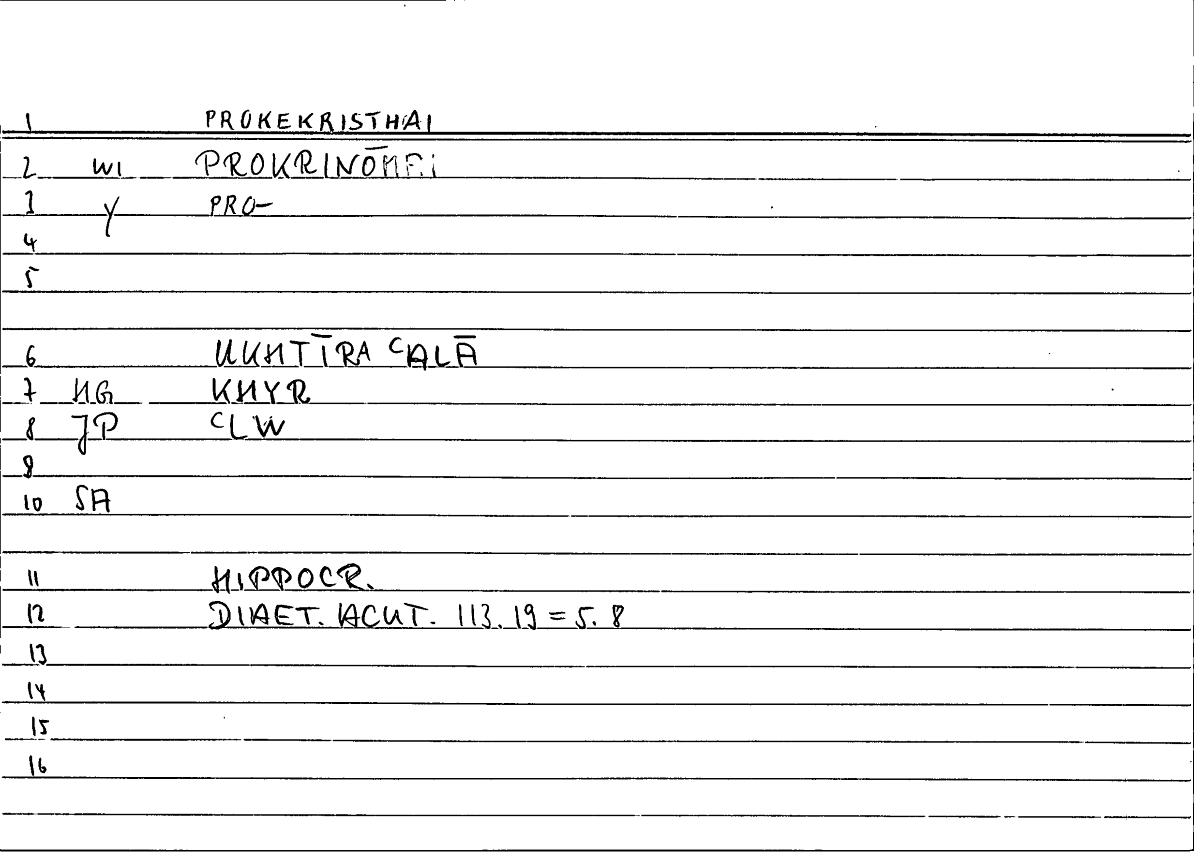 1 PROKEKRISTHAI
2 WI PROKRINŌMEI
3 Y PRO-
4
5
6 UKHTĪRA ᶜALĀ
7 HG KHYR
8 JP ᶜLW
9
10 SA
11 HIPPOCR.
12 DIAET. ACUT. 113.19 = 5.8
13
14
15
16